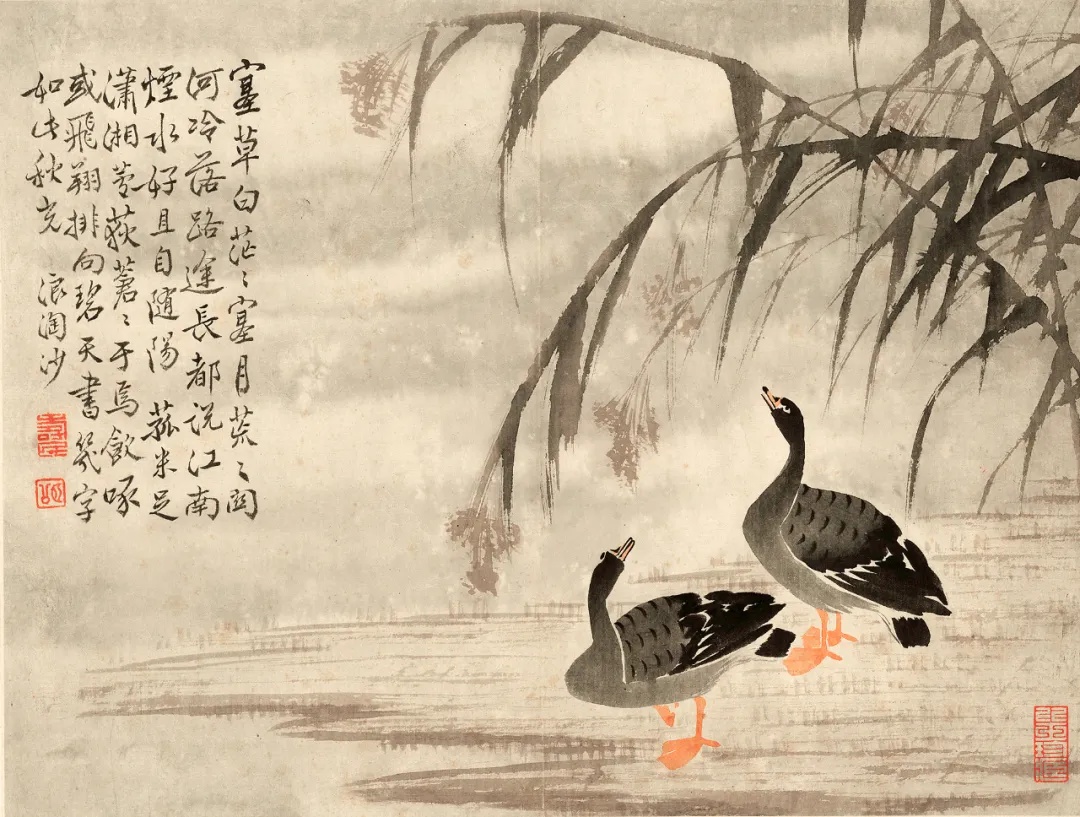 塞草白茫〻塞月荒〻関
河冷落路途長都说江南
煙水好且自随陽 菰米足
潇湘芦荻蒼〻于焉飲啄
或飛翔排向碧天書幾字
如此秋光 浪淘沙